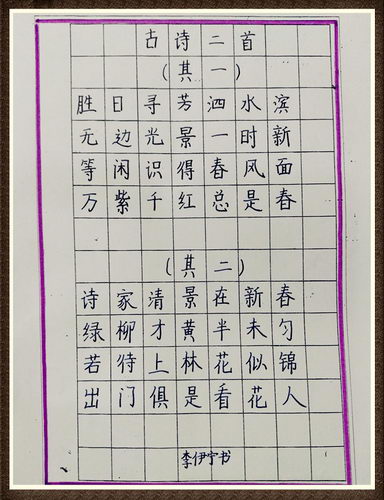 古诗二首
(其一)
胜日寻芳泗水滨
无边光景一时新
等闲识得春风面
万紫千红总是春
(其二)
诗家清景在新春
绿柳才黄半未匀
若待上林花似锦
出门俱是看花人
李伊宁书